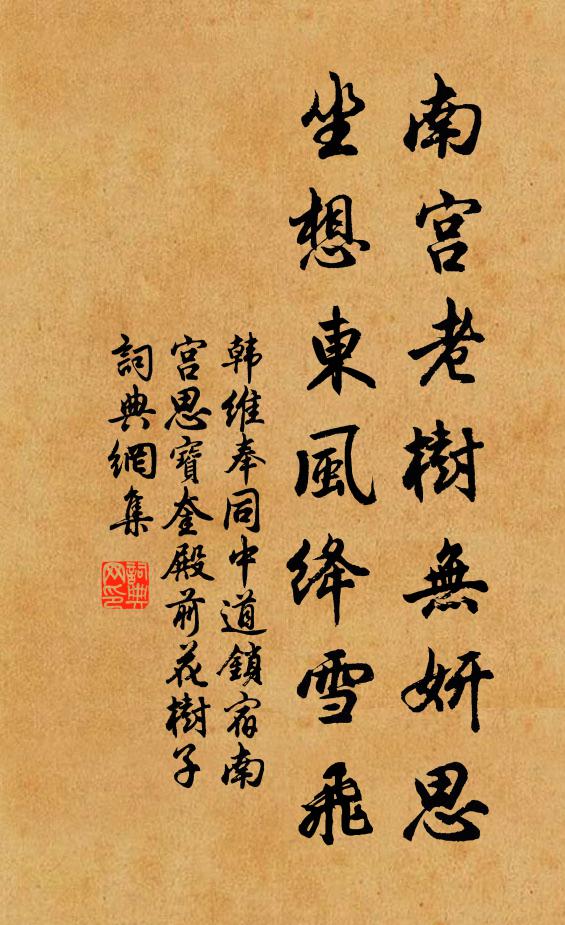 南宮老樹無妍思
坐想東風絳雪飛
韩維奉同中道鎖宿南
宮思寶奎殿前花樹子
詞典網集
詞典网印